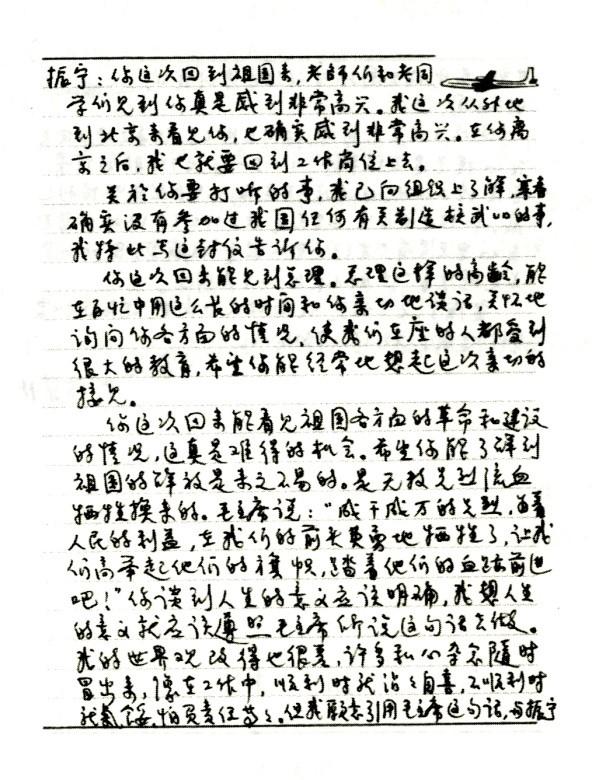 振宁：你这次回到祖国来，老師们和老同
学们见到你真是感到非常高兴。我这次从外地
到北京来看见你，也确实感到非常高兴。在你离
京之后，我也就要回到工作岗位上去。
关於你要打听的事，我已向组织上了解，寒春
确实没有参加过我国任何有关制造核武器的事，
我特此写这封信告诉你。
你这次回来能见到总理。总理这样的高龄，能
在百忙中用这么长的时间和你亲切地谈话，关怀地
询问你各方面的情况，使我们在座的人都受到
很大的教育，希望你能经常地想起这次亲切的
接见。
你这次回来能看见祖国各方面的革命和建设
的情况，这真是难得的机会。希望你能了解到
祖国的解放是来之不易的。是无数先烈流血
牺牲换来的。毛主席说：“成千成万的先烈，为着
人民的利益，在我们的前头英勇地牺牲了，让我
们高举起他们的旗帜，踏着他们的血迹前进
吧！”你谈到人生的意义应该明确，我想人生
的意义就应该遵照毛主席所说这句话去做。
我的世界观改得也很差，许多私心杂念随时
冒出来，像在工作中，顺利时就沾沾自喜，不顺利时
就气馁，怕负责任等等。但我愿意引用毛主席这句话，与振宁